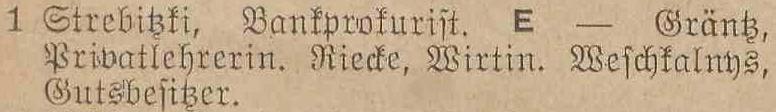 1 Strebitzki, Bankprokurist. E — Gräntz,
Privatlehrerin. Riecke, Wirtin. Weschkalnys,
Gutsbesitzer.